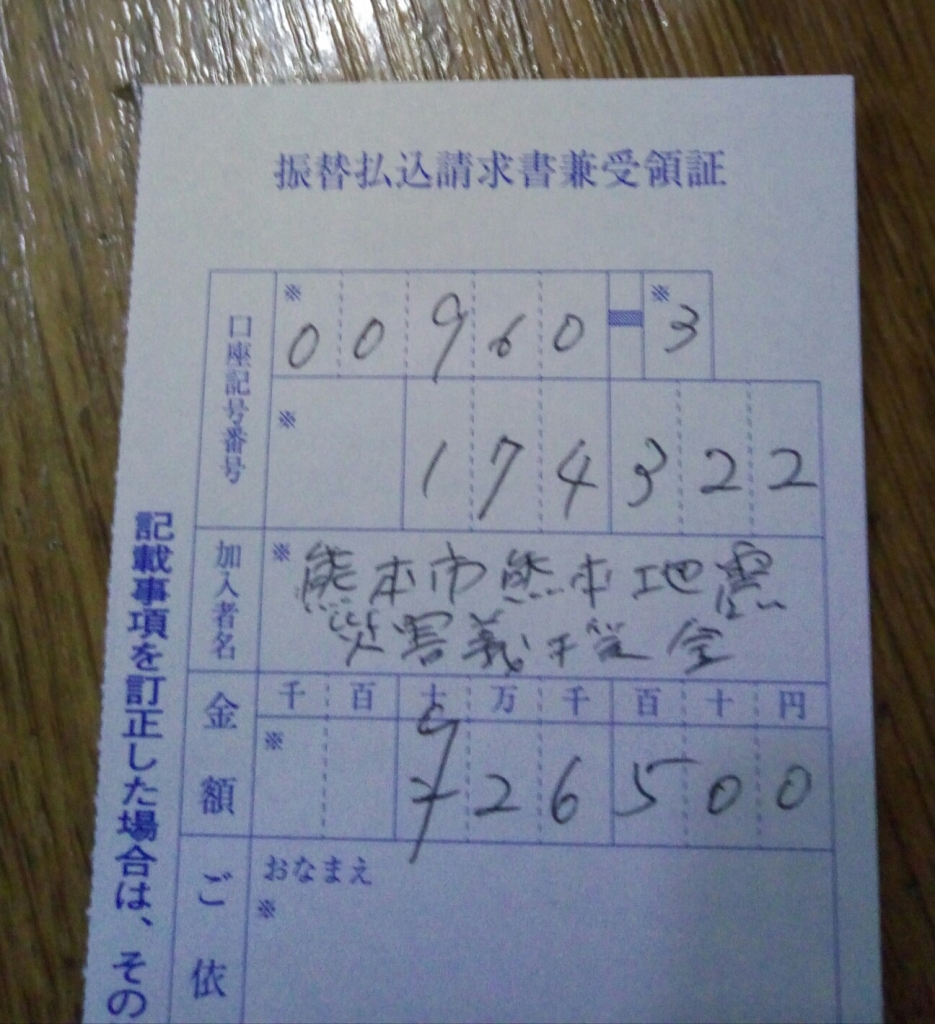 振替払込請求書兼受領証
口座記号番号
※ 0 0 9 6 0 ※ 3
※ 1 7 4 3 2 2
加入者名
※ 熊本市熊本地震
災害義援金
金額
千 百 十 万 千 百 十 円
※ 2 6 5 0 0
ご依
おなまえ
※
記載事項を訂正した場合は、その